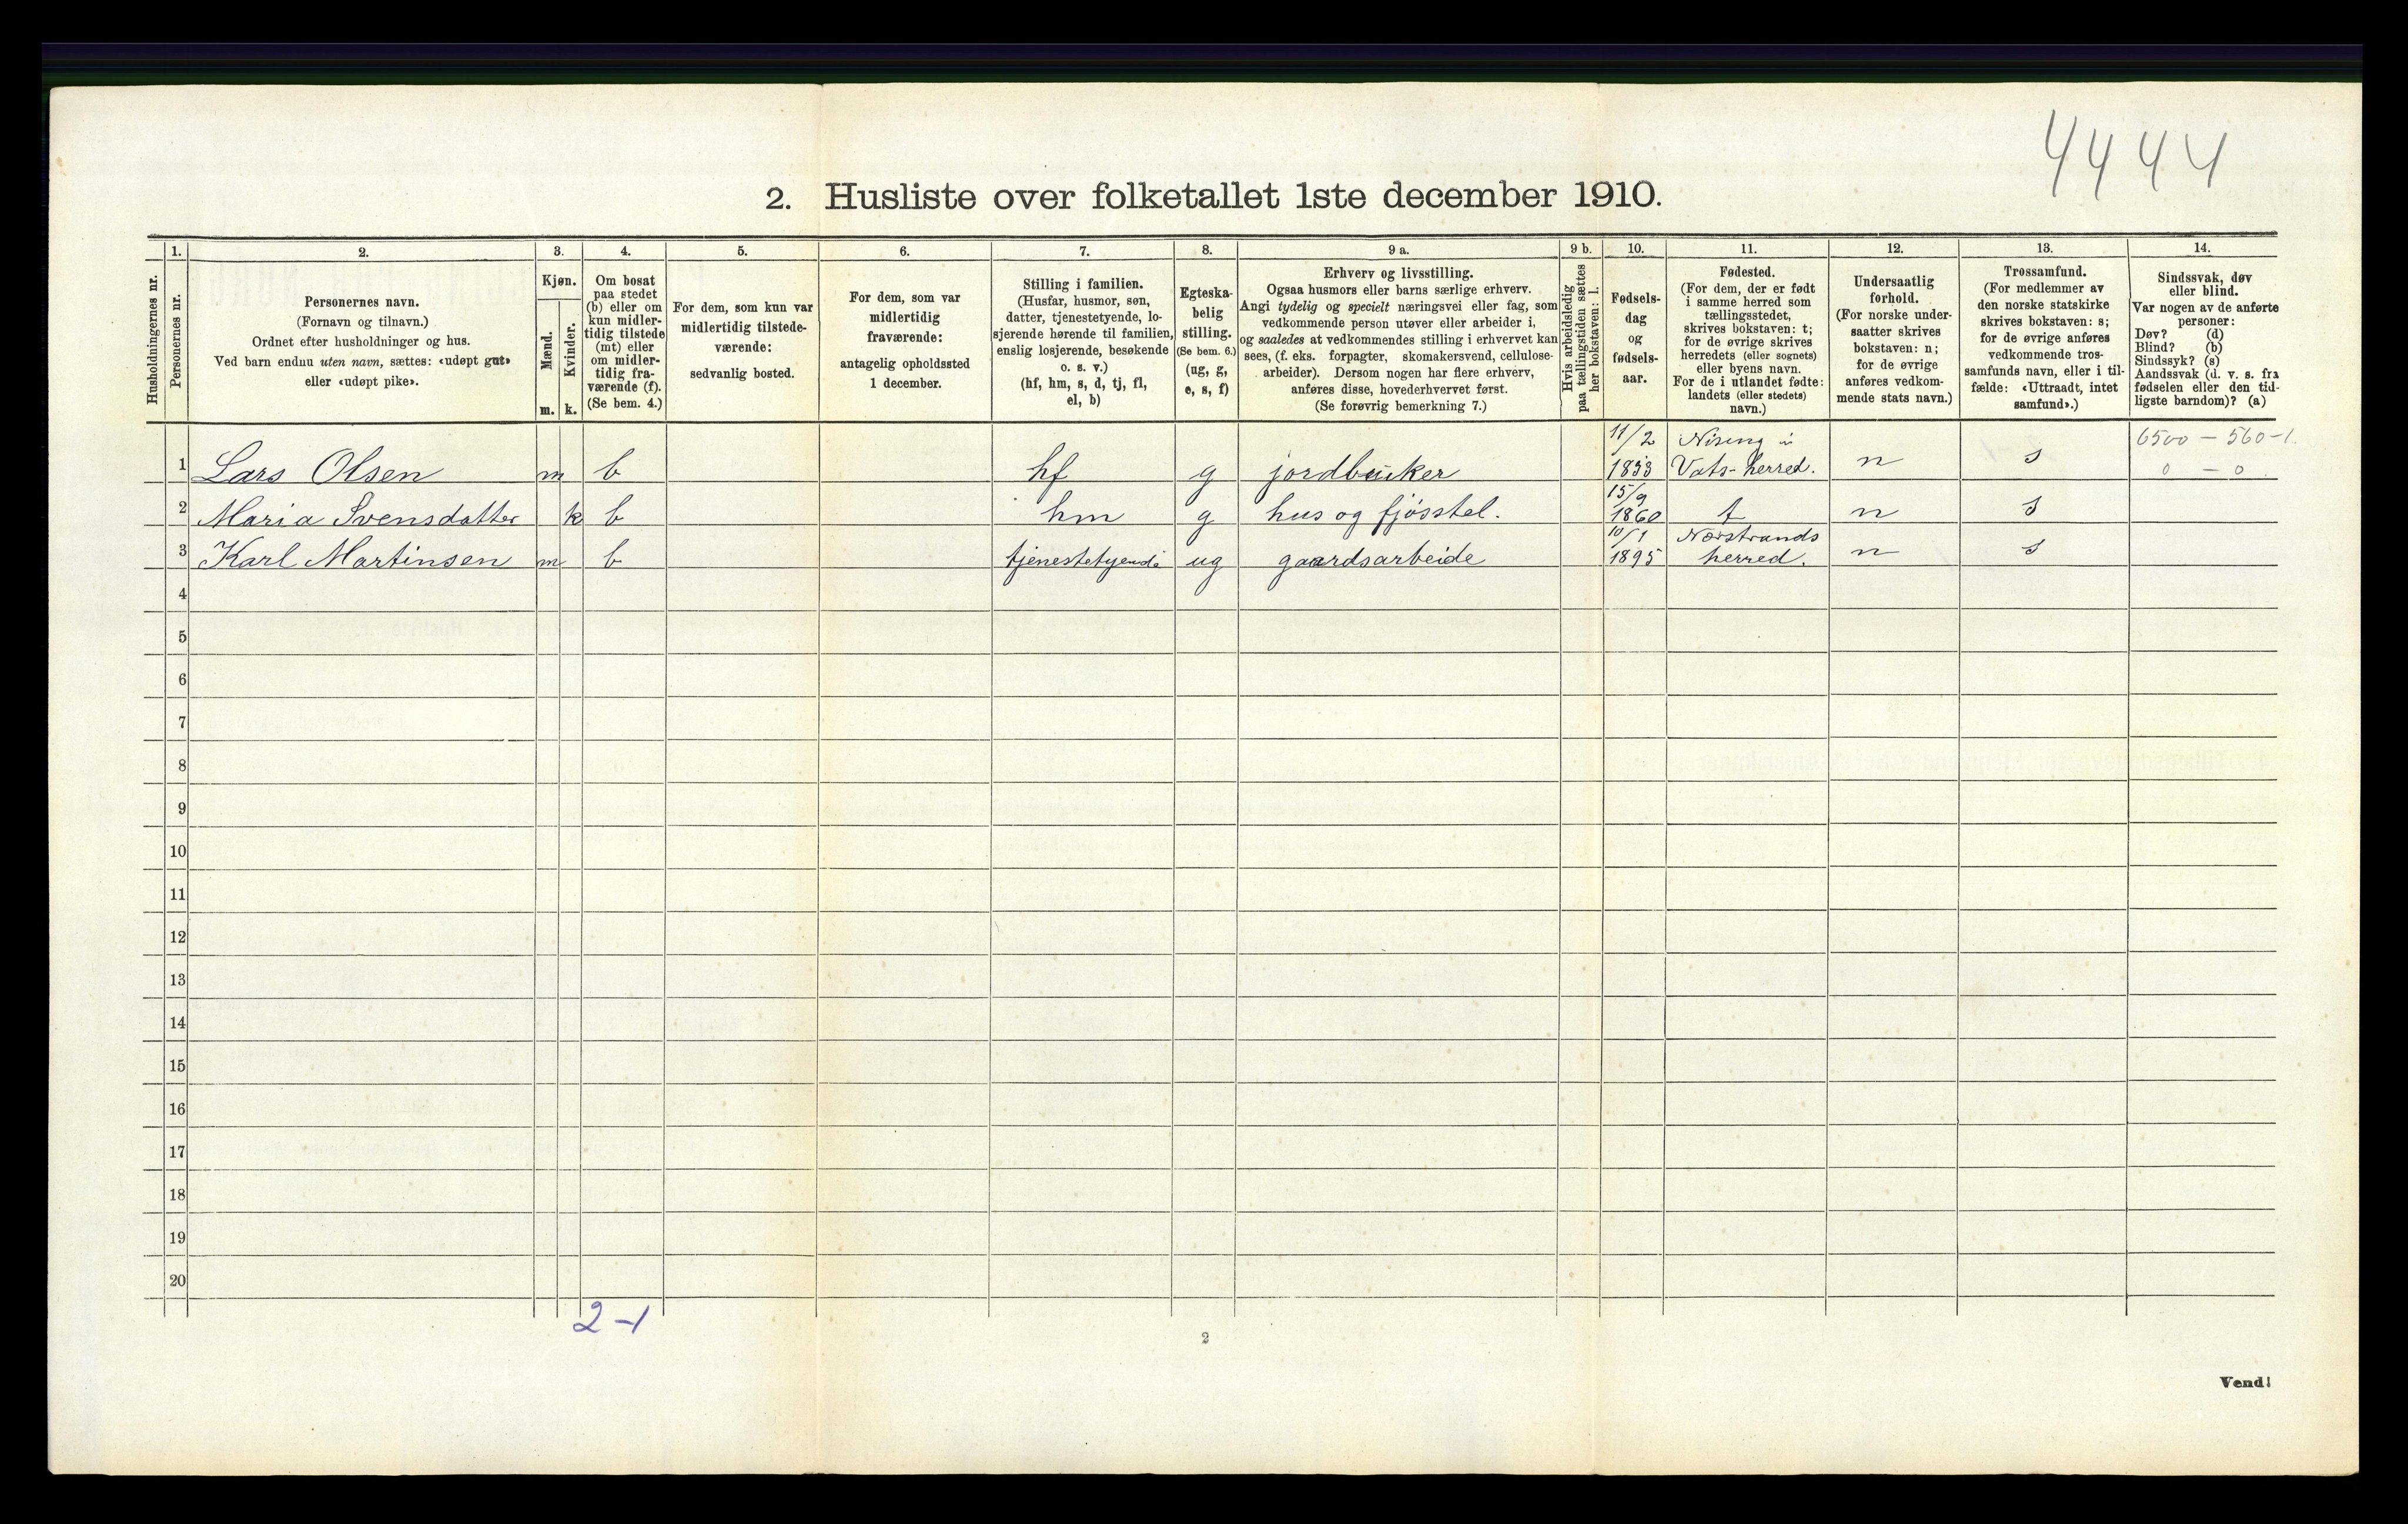 4444
2. Husliste over folketallet 1ste december 1910.
Husholdningernes nr.
1.
Personernes nr.
2.
Personernes navn.
(Fornavn og tilnavn.)
Ordnet efter husholdninger og hus.
Ved barn endnu uten navn, sættes: «udøpt gut»
eller «udøpt pike».
3.
Kjøn.
Mænd.
m.
Kvinder.
k.
4.
Om bosat
paa stedet
(b) eller om
kun midler-
tidig tilstede
(mt) eller
om midler-
tidig fra-
værende (f).
(Se bem. 4.)
5.
For dem, som kun var
midlertidig tilstede-
værende:
sedvanlig bosted.
6.
For dem, som var
midlertidig
fraværende:
antagelig opholdssted
1 december.
7.
Stilling i familien.
(Husfar, husmor, søn,
datter, tjenestetyende, lo-
sjerende hørende til familien,
enslig losjerende, besøkende
o. s. v.)
(hf, hm, s, d, tj, fl,
el, b)
8.
Egteska-
belig
stilling.
(Se bem. 6.)
(ug, g,
e, s, f)
9 a.
Erhverv og livsstilling.
Ogsaa husmors eller barns særlige erhverv.
Angi tydelig og specielt næringsvei eller fag, som
vedkommende person utøver eller arbeider i,
og saaledes at vedkommendes stilling i erhvervet kan
sees, (f. eks. forpagter, skomakersvend, cellulose-
arbeider). Dersom nogen har flere erhverv,
anføres disse, hovederhvervet først.
(Se forøvrig bemerkning 7.)
9 b.
Hvis arbeidsledig
paa tællingstiden sættes
her bokstaven: l.
10.
Fødsels-
dag
og
fødsels-
aar.
11.
Fødested.
(For dem, der er født
i samme herred som
tællingsstedet,
skrives bokstaven: t;
for de øvrige skrives
herredets (eller sognets)
eller byens navn.
For de i utlandet fødte:
landets (eller stedets)
navn.)
12.
Undersaatlig
forhold.
(For norske under-
saatter skrives
bokstaven: n;
for de øvrige
anføres vedkom-
mende stats navn.)
13.
Trossamfund.
(For medlemmer av
den norske statskirke
skrives bokstaven: s;
for de øvrige anføres
vedkommende tros-
samfunds navn, eller i til-
fælde: «Uttraadt, intet
samfund».)
14.
Sindssvak, døv
eller blind.
Var nogen av de anførte
personer:
Døv? (d)
Blind? (b)
Sindssyk? (s)
Aandssvak (d. v. s. fra
fødselen eller den tid-
ligste barndom)? (a)
11/2 i 6500 - 560-1.
1 Lars Olsen m b hf g jordbruker Vats-herred. n s 0 - 0
15/9
2 Maria Svensdatter k b hm g hus og fjøsstel. 1860 t n s
10/1 Nærstrands
3 Karl Martinsen m b tjenestetyende ug gaardsarbeide 1895 herred. n s
4
5
6
7
8
9
10
11
12
13
14
15
16
17
18
19
20
2-1
2
Vend!